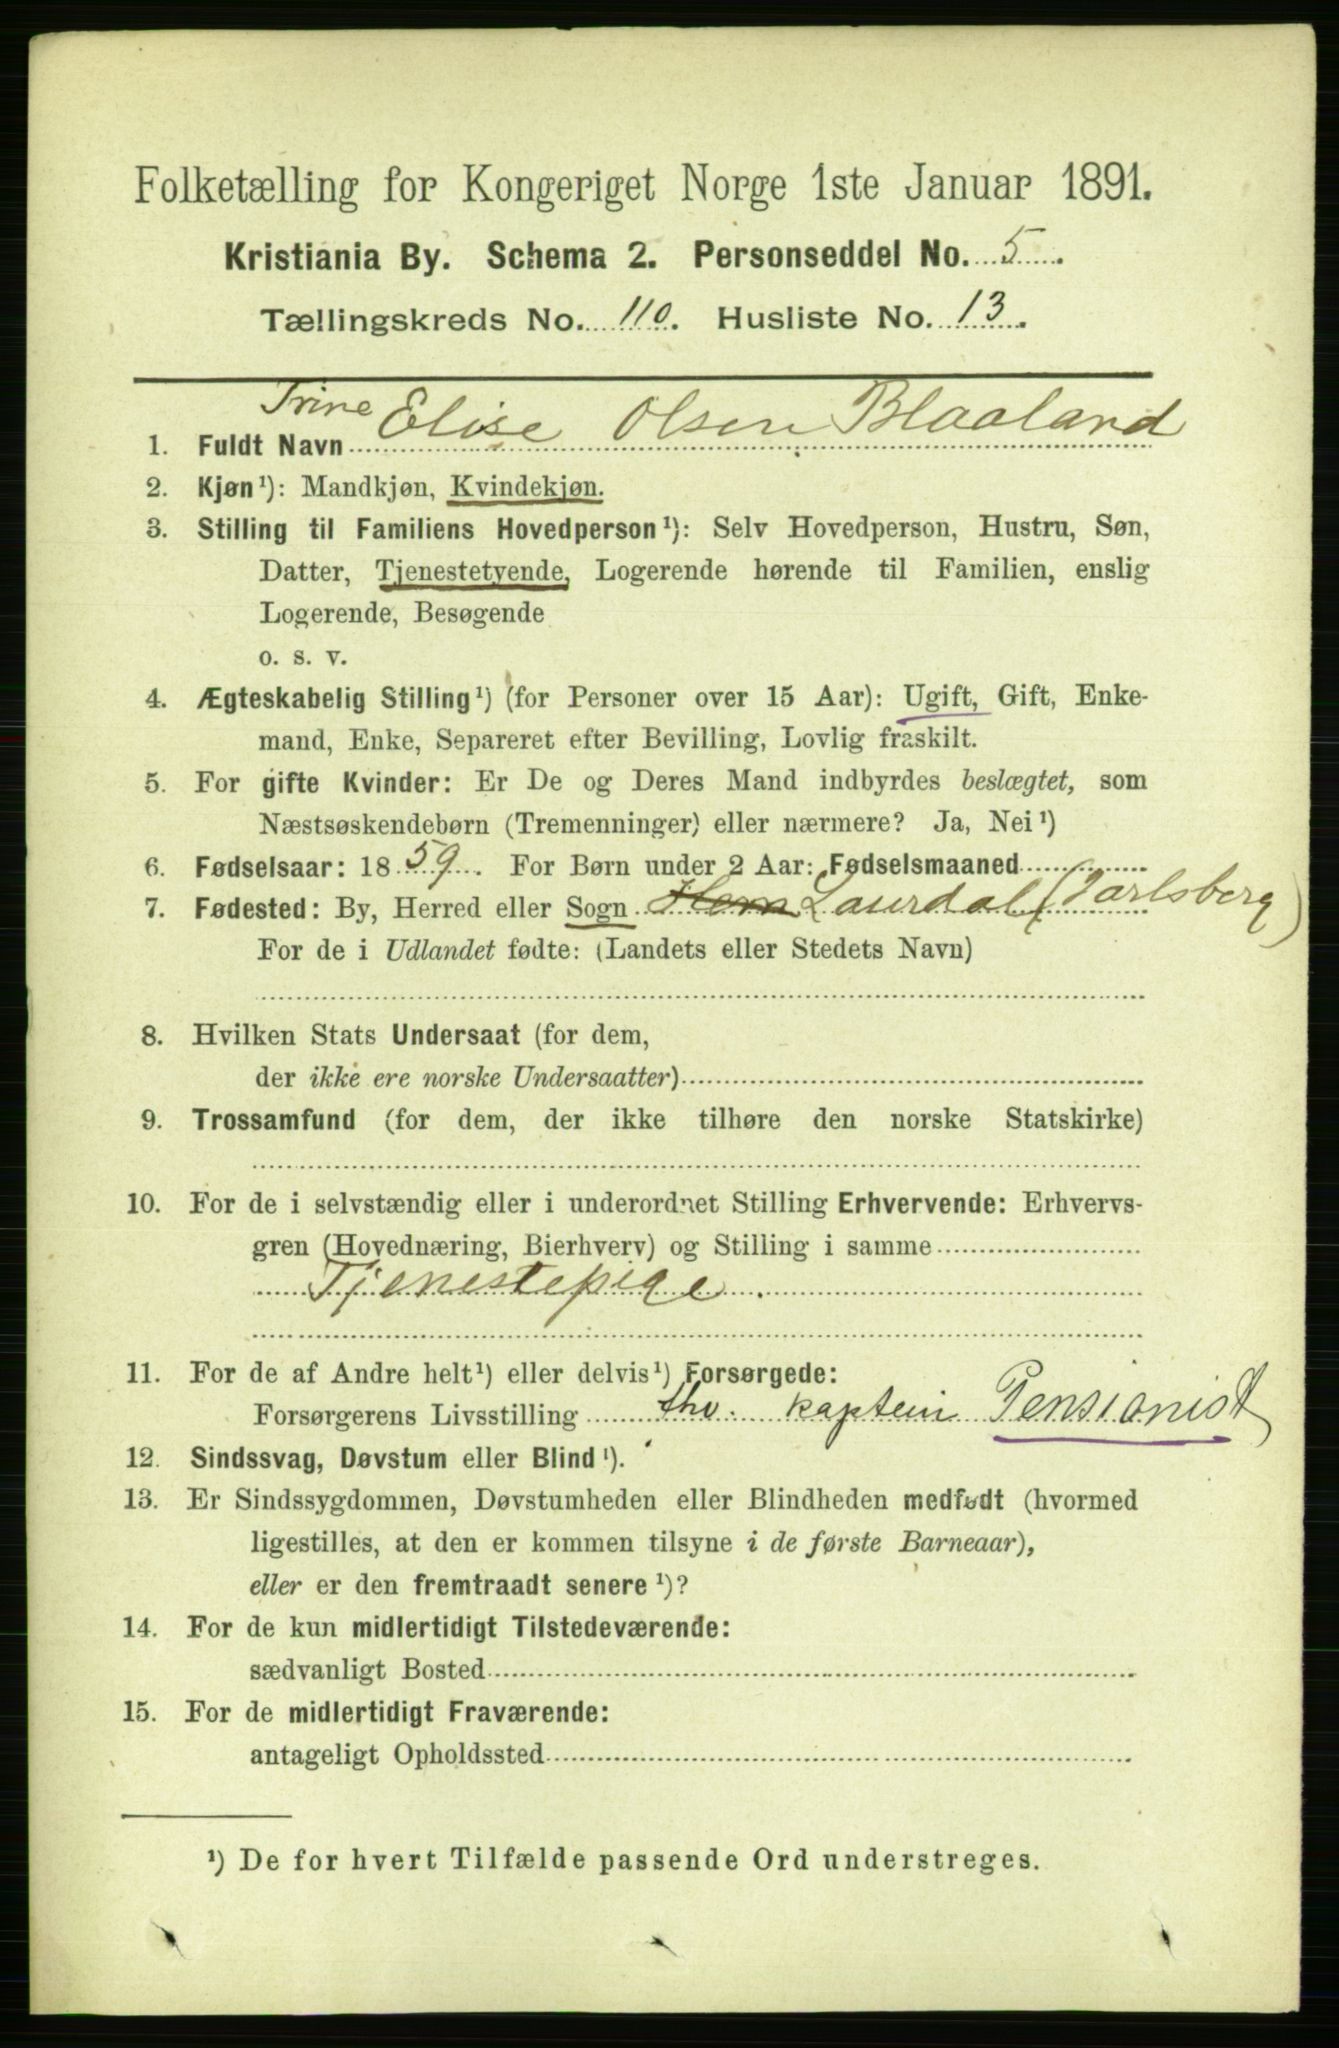 Folketælling for Kongeriget Norge 1ste Januar 1891.
Kristiania By. Schema 2. Personseddel No. 5.
Tællingskreds No. 110. Husliste No. 13.
Trine
1. Fuldt Navn Elise Olsen Blaaland
2. Kjøn¹): Mandkjøn, Kvindekjøn.
3. Stilling til Familiens Hovedperson¹): Selv Hovedperson, Hustru, Søn,
Datter, Tjenestetyende, Logerende hørende til Familien, enslig
Logerende, Besøgende
o. s. v.
4. Ægteskabelig Stilling¹) (for Personer over 15 Aar): Ugift, Gift, Enke-
mand, Enke, Separeret efter Bevilling, Lovlig fraskilt.
5. For gifte Kvinder: Er De og Deres Mand indbyrdes beslægtet, som
Næstsøskendebørn (Tremenninger) eller nærmere? Ja, Nei¹)
6. Fødselsaar: 1859. For Børn under 2 Aar: Fødselsmaaned
7. Fødested: By, Herred eller Sogn Hem Laurdal (Jarlsberg)
For de i Udlandet fødte: (Landets eller Stedets Navn)
8. Hvilken Stats Undersaat (for dem,
der ikke ere norske Undersaatter)
9. Trossamfund (for dem, der ikke tilhøre den norske Statskirke)
10. For de i selvstændig eller i underordnet Stilling Erhvervende: Erhvervs-
gren (Hovednæring, Bierhverv) og Stilling i samme
Tjenestepige.
11. For de af Andre helt¹) eller delvis¹) Forsørgede:
Forsørgerens Livsstilling thv. kaptein Pensionist
12. Sindssvag, Døvstum eller Blind¹).
13. Er Sindssygdommen, Døvstumheden eller Blindheden medfødt (hvormed
ligestilles, at den er kommen tilsyne i de første Barneaar),
eller er den fremtraadt senere¹)?
14. For de kun midlertidigt Tilstedeværende:
sædvanligt Bosted
15. For de midlertidigt Fraværende:
antageligt Opholdssted
¹) De for hvert Tilfælde passende Ord understreges.